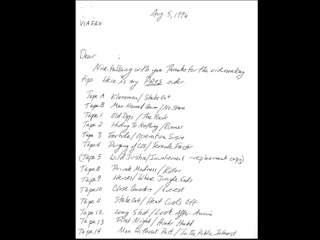 Aug 5, 1996
VIA FAX
Dear
Nice talking with you. Thanks for the widmaking
tips. Here is my PROS order
Tape A Klansman / Stake Out
Tape B Man Named Quinn / No Stone
Tape 1 Old Dog / The Rack
Tape 2 Hiding To Nothing / Runner
Tape 3 Fortitude / Operation Susie
Tape 4 Purging of CI5 / Female Factor
(Tape 5 Wild Justice / Involvement - replacement copy)
Tape 8 Private Madness / Killer
Tape 9 Heroes / Where Jungle Ends
Tape 10 Close Quarters /
Tape 11 Stake Out / Heat Cools Off
Tape 12 Long Shot / Look After Annie
Tape 13 First Night / Hunt
Tape 14 Man Without Past / In The Public Interest